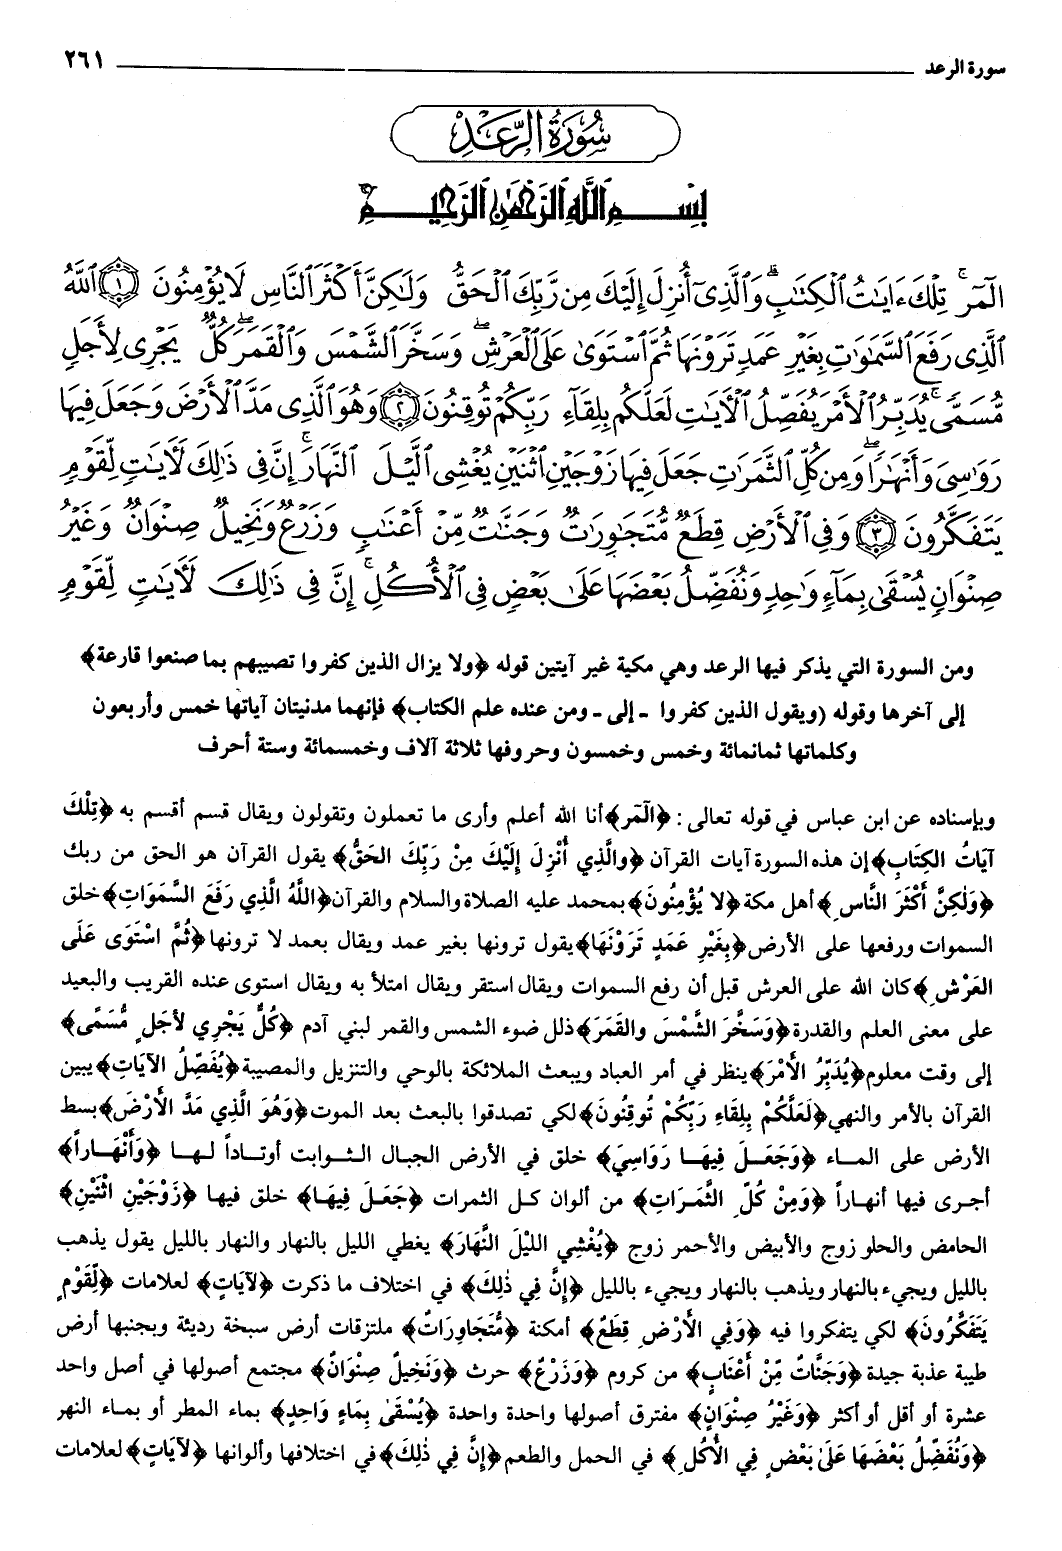 سورة الرعد ٢٦١
سُورَةُ الرَّعْدِ
بِسْمِ اللَّهِ الرَّحْمَٰنِ الرَّحِيمِ
الٓمٓر ۚ تِلْكَ ءَايَٰتُ ٱلْكِتَٰبِ ۗ وَٱلَّذِىٓ أُنزِلَ إِلَيْكَ مِن رَّبِّكَ ٱلْحَقُّ وَلَٰكِنَّ أَكْثَرَ ٱلنَّاسِ لَا يُؤْمِنُونَ ١ ٱللَّهُ
ٱلَّذِى رَفَعَ ٱلسَّمَٰوَٰتِ بِغَيْرِ عَمَدٍ تَرَوْنَهَا ثُمَّ ٱسْتَوَىٰ عَلَى ٱلْعَرْشِ ۖ وَسَخَّرَ ٱلشَّمْسَ وَٱلْقَمَرَ ۖ كُلٌّ يَجْرِى لِأَجَلٍ
مُّسَمًّى ۚ يُدَبِّرُ ٱلْأَمْرَ يُفَصِّلُ ٱلْءَايَٰتِ لَعَلَّكُم بِلِقَآءِ رَبِّكُمْ تُوقِنُونَ ٢ وَهُوَ ٱلَّذِى مَدَّ ٱلْأَرْضَ وَجَعَلَ فِيهَا
رَوَٰسِىَ وَأَنْهَٰرًا ۖ وَمِن كُلِّ ٱلثَّمَرَٰتِ جَعَلَ فِيهَا زَوْجَيْنِ ٱثْنَيْنِ يُغْشِى ٱلَّيْلَ ٱلنَّهَارَ ۚ إِنَّ فِى ذَٰلِكَ لَءَايَٰتٍ لِّقَوْمٍ
يَتَفَكَّرُونَ ٣ وَفِى ٱلْأَرْضِ قِطَعٌ مُّتَجَٰوِرَٰتٌ وَجَنَّٰتٌ مِّنْ أَعْنَٰبٍ وَزَرْعٌ وَنَخِيلٌ صِنْوَانٌ وَغَيْرُ
صِنْوَانٍ يُسْقَىٰ بِمَآءٍ وَٰحِدٍ وَنُفَضِّلُ بَعْضَهَا عَلَىٰ بَعْضٍ فِى ٱلْأُكُلِ ۚ إِنَّ فِى ذَٰلِكَ لَءَايَٰتٍ لِّقَوْمٍ
ومن السورة التي يذكر فيها الرعد وهي مكية غير آيتين قوله ﴿ولا يزال الذين كفروا تصيبهم بما صنعوا قارعة﴾
إلى آخرها وقوله (ويقول الذين كفروا ـ إلى ـ ومن عنده علم الكتاب﴾ فإنهما مدنيتان آياتها خمس وأربعون
وكلماتها ثمانمائة وخمس وخمسون وحروفها ثلاثة آلاف وخمسمائة وستة أحرف
وبإسناده عن ابن عباس في قوله تعالى: ﴿الٓمٓر﴾ أنا الله أعلم وأرى ما تعملون وتقولون ويقال قسم أقسم به ﴿تِلْكَ
آيَاتُ الكِتَابِ﴾ إن هذه السورة آيات القرآن ﴿والَّذِي أُنْزِلَ إِلَيْكَ مِنْ رَبِّكَ الحَقُّ﴾ يقول القرآن هو الحق من ربك
﴿وَلٰكِنَّ أَكْثَرَ النَّاسِ﴾ أهل مكة ﴿لا يُؤْمِنُونَ﴾ بمحمد عليه الصلاة والسلام والقرآن ﴿اللَّهُ الَّذِي رَفَعَ السَّمَوَاتِ﴾ خلق
السموات ورفعها على الأرض ﴿بِغَيْرِ عَمَدٍ تَرَوْنَهَا﴾ يقول ترونها بغير عمد ويقال بعمد لا ترونها ﴿ثُمَّ اسْتَوَى عَلَى
العَرْشِ﴾ كان الله على العرش قبل أن رفع السموات ويقال استقر ويقال امتلأ به ويقال استوى عنده القريب والبعيد
على معنى العلم والقدرة ﴿وَسَخَّرَ الشَّمْسَ والقَمَرَ﴾ ذلل ضوء الشمس والقمر لبني آدم ﴿كُلٌّ يَجْرِي لأَجَلٍ مُسَمًّى﴾
إلى وقت معلوم ﴿يُدَبِّرُ الأَمْرَ﴾ ينظر في أمر العباد ويبعث الملائكة بالوحي والتنزيل والمصيبة ﴿يُفَصِّلُ الآيَاتِ﴾ يبين
القرآن بالأمر والنهي ﴿لَعَلَّكُمْ بِلِقَاءِ رَبِّكُمْ تُوقِنُونَ﴾ لكي تصدقوا بالبعث بعد الموت ﴿وَهُوَ الَّذِي مَدَّ الأَرْضَ﴾ بسط
الأرض على الماء ﴿وَجَعَلَ فِيهَا رَوَاسِيَ﴾ خلق في الأرض الجبال الثوابت أوتاداً لها ﴿وَأَنْهَاراً﴾
أجرى فيها أنهاراً ﴿وَمِنْ كُلِّ الثَّمَرَاتِ﴾ من ألوان كل الثمرات ﴿جَعَلَ فِيهَا﴾ خلق فيها ﴿زَوْجَيْنِ اثْنَيْنِ﴾
الحامض والحلو زوج والأبيض والأحمر زوج ﴿يُغْشِي اللَيْلَ النَّهَارَ﴾ يغطي الليل بالنهار والنهار بالليل يقول يذهب
بالليل ويجيء بالنهار ويذهب بالنهار ويجيء بالليل ﴿إِنَّ فِي ذٰلِكَ﴾ في اختلاف ما ذكرت ﴿لآيَاتٍ﴾ لعلامات ﴿لِّقَوْمٍ
يَتَفَكَّرُونَ﴾ لكي يتفكروا فيه ﴿وَفِي الأَرْضِ قِطَعٌ﴾ أمكنة ﴿مُّتَجَاوِرَاتٌ﴾ ملتزقات أرض سبخة رديئة وبجنبها أرض
طيبة عذبة جيدة ﴿وَجَنَّاتٌ مِّنْ أَعْنَابٍ﴾ من كروم ﴿وَزَرْعٌ﴾ حرث ﴿وَنَخِيلٌ صِنْوَانٌ﴾ مجتمع أصولها في أصل واحد
عشرة أو أقل أو أكثر ﴿وَغَيْرُ صِنْوَانٍ﴾ مفترق أصولها واحدة واحدة ﴿يُسْقَىٰ بِمَاءٍ وَاحِدٍ﴾ بماء المطر أو بماء النهر
﴿وَنُفَضِّلُ بَعْضَهَا عَلَىٰ بَعْضٍ فِي الأُكُلِ﴾ في الحمل والطعم ﴿إِنَّ فِي ذٰلِكَ﴾ في اختلافها وألوانها ﴿لآيَاتٍ﴾ لعلامات